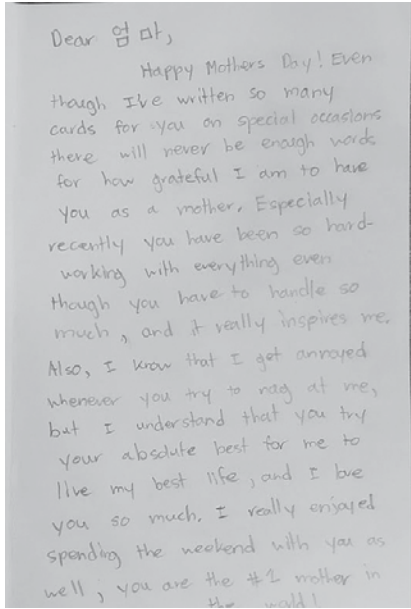 Dear 엄마,
Happy Mothers Day! Even
though I've written so many
cards for you on special occasions
there will never be enough words
for how grateful I am to have
you as a mother. Especially
recently you have been so hard-
working with everything even
though you have to handle so
much, and it really inspires me.
Also, I know that I get annoyed
whenever you try to nag at me,
but I understand that you try
your absolute best for me to
live my best life, and I love
you so much. I really enjoyed
spending the weekend with you as
well, you are the #1 mother in
the world!